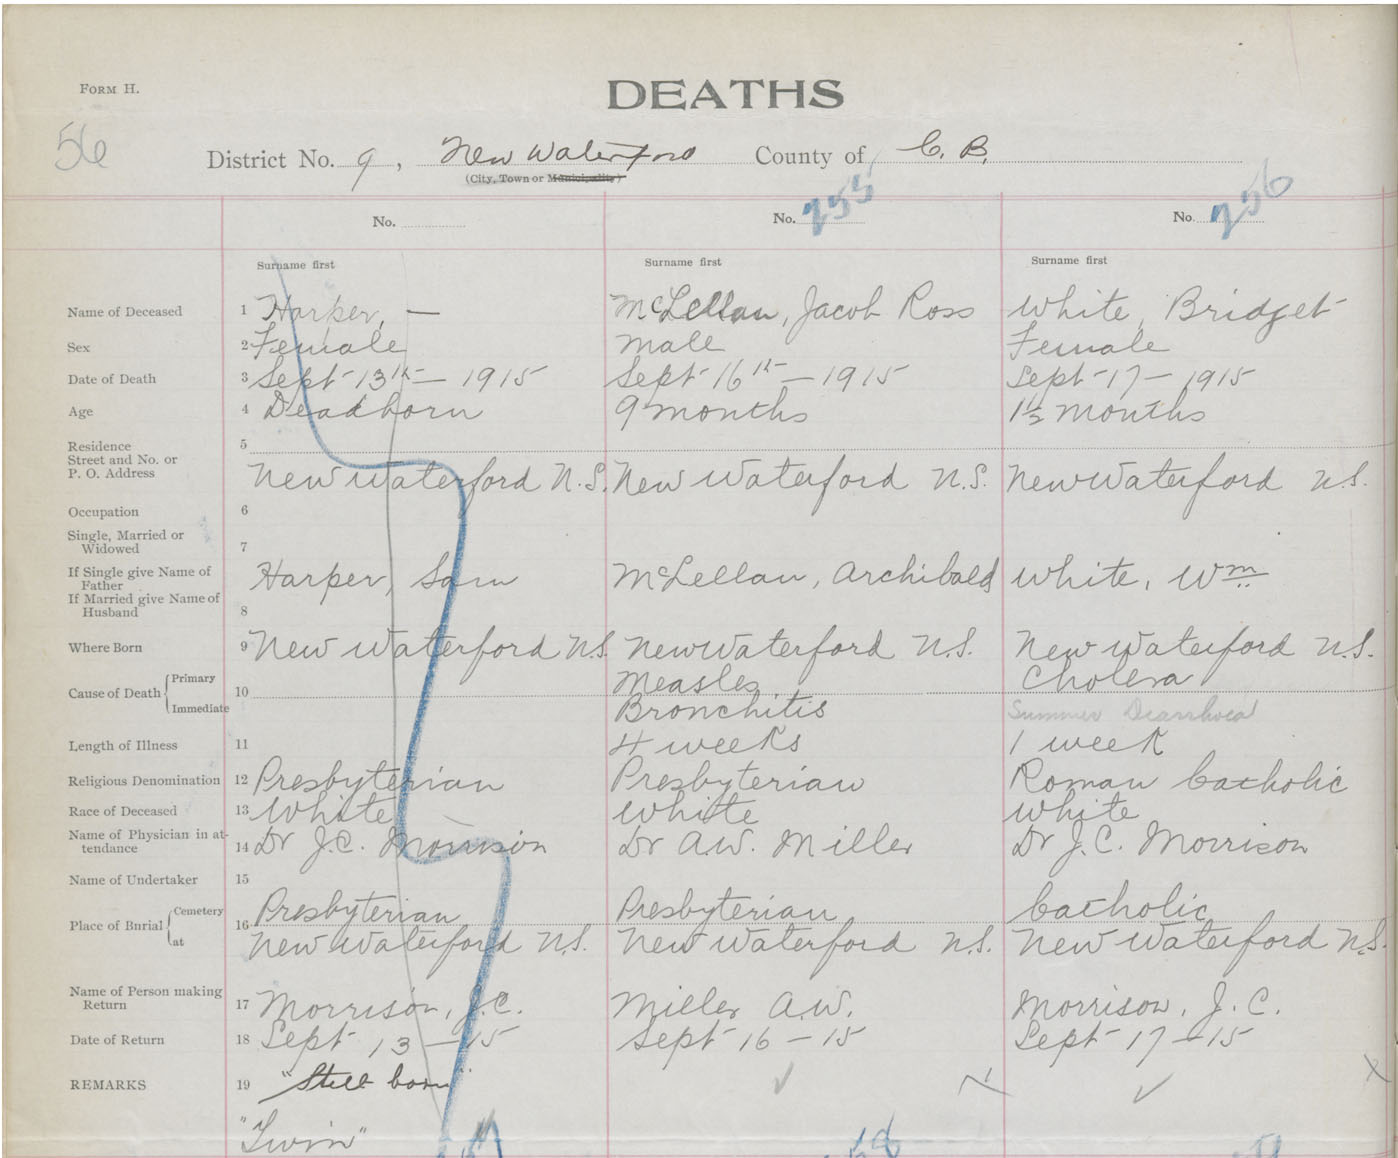 FORM H.
DEATHS
56
District No. 9, New Waterford County of C. B.
(City, Town or Municipality)
No. No. 255 No. 256
Surname first Surname first Surname first
Name of Deceased 1 Harper, — McLellan, Jacob Ross White, Bridget
Sex 2 Female Male Female
Date of Death 3 Sept 13th — 1915 Sept 16th — 1915 Sept 17 — 1915
Age 4 Deadborn 9 months 1½ months
Residence 5
Street and No. or
P. O. Address New Waterford N.S. New Waterford N.S. New Waterford N.S.
Occupation 6
Single, Married or
Widowed 7
If Single give Name of
Father Harper, Sam McLellan, Archibald White, Wm
If Married give Name of
Husband 8
Where Born 9 New Waterford N.S. New Waterford N.S. New Waterford N.S.
Cause of Death Primary 10 Measles Cholera
Immediate Bronchitis Summer Diarrhoea
Length of Illness 11 4 weeks 1 week
Religious Denomination 12 Presbyterian Presbyterian Roman Catholic
Race of Deceased 13 White White White
Name of Physician in at-
tendance 14 Dr J.C. Morrison Dr A.W. Miller Dr J.C. Morrison
Name of Undertaker 15
Place of Burial Cemetery 16 Presbyterian Presbyterian Catholic
at New Waterford N.S. New Waterford N.S. New Waterford N.S.
Name of Person making
Return 17 Morrison, J.C. Miller A.W. Morrison, J.C.
Date of Return 18 Sept 13 — 15 Sept 16 — 15 Sept 17 — 15
REMARKS 19 "Still born"
"Twin"